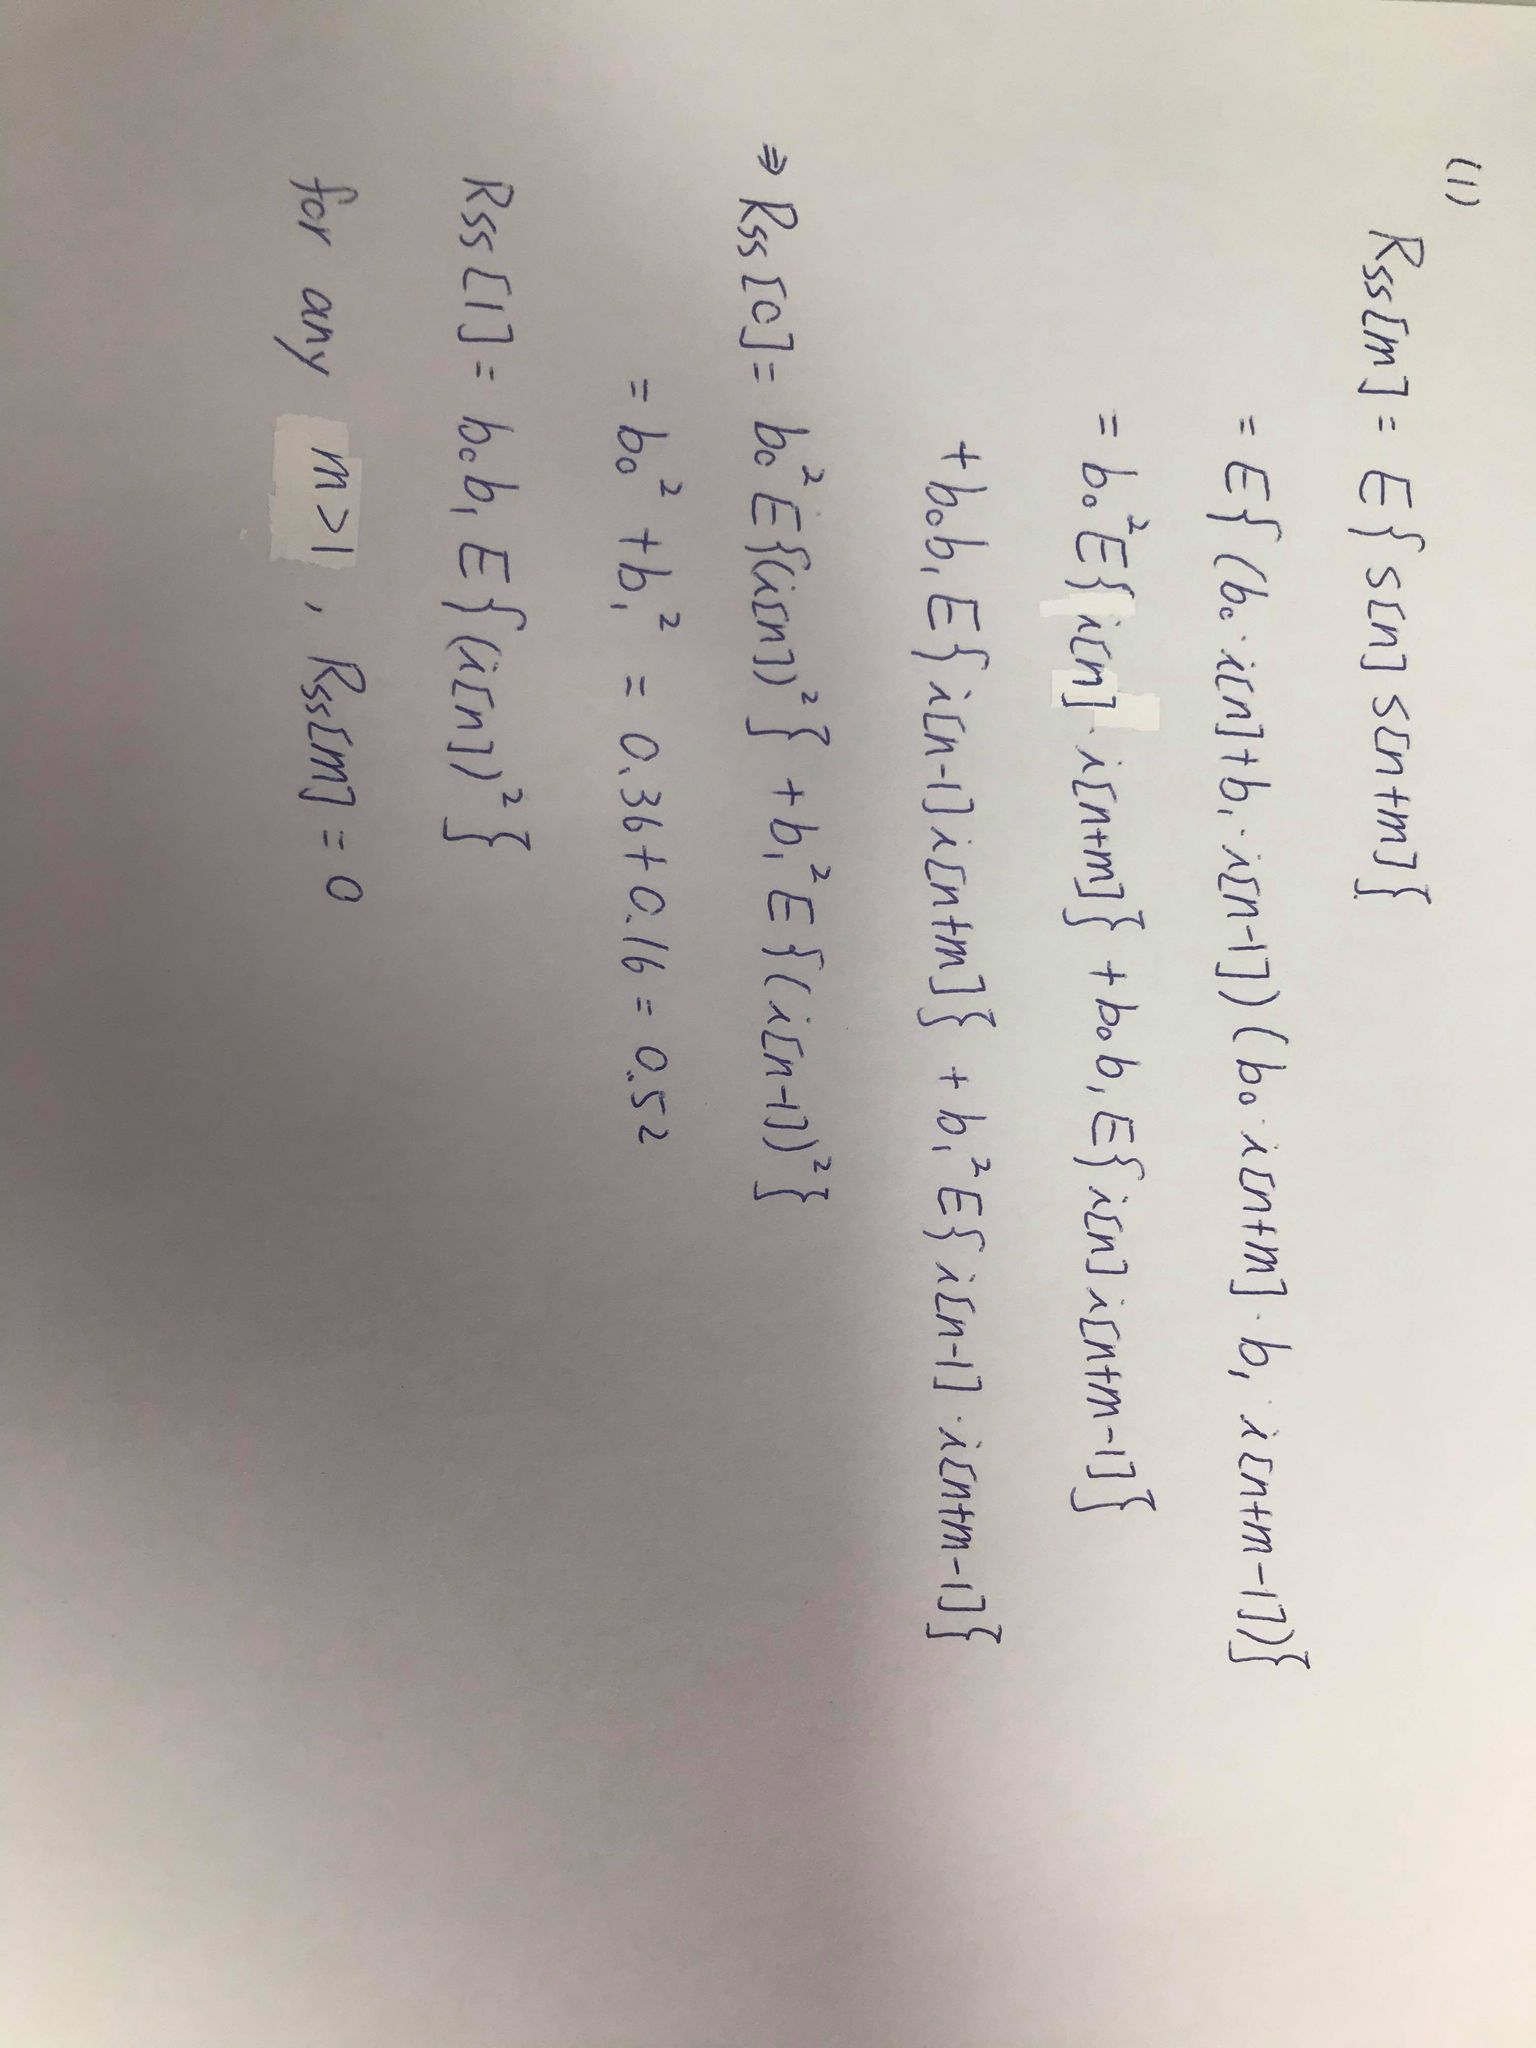 (1)
Rss[m] = E{s[n]s[n+m]}
= E{(b₀·i[n]+b₁·i[n-1])(b₀·i[n+m]·b₁·i[n+m-1])}
= b₀²E{i[n]·i[n+m]} + b₀b₁E{i[n]i[n+m-1]}
+ b₀b₁E{i[n-1]i[n+m]} + b₁²E{i[n-1]·i[n+m-1]}
⇒ Rss[0] = b₀²E{(i[n])²} + b₁²E{(i[n-1])²}
= b₀² + b₁² = 0.36+0.16 = 0.52
Rss[1] = b₀b₁E{(i[n])²}
for any m>1, Rss[m] = 0